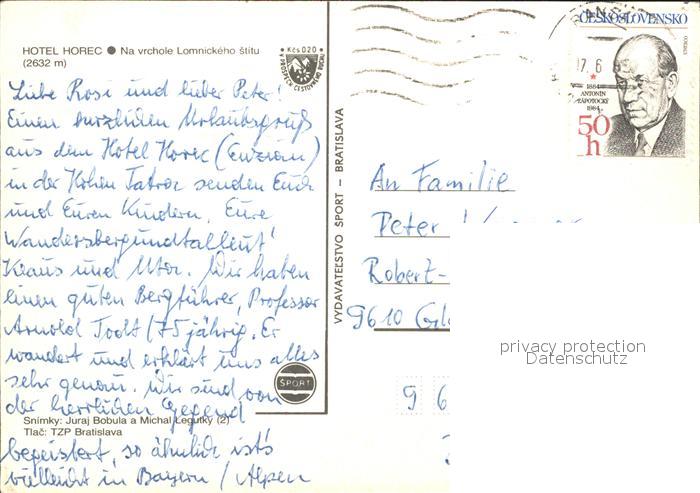 HOTEL HOREC ● Na vrchole Lomnického štítu
(2632 m)
Kčs 0,20
V PROSPECH CESTOVNÉHO RUCHU
Liebe Rosi und lieber Peter!
Einen herzlichen Urlaubsgruß
aus dem Hotel Horec (Enzian)
in der Hohen Tatra senden Euch
und Euren Kindern, Eure
Wandersbergundtalleut'
Klaus und Uta. Wir haben
einen guten Bergführer, Professor
Arnold Todt (75 jährig. Er
wandert und erklärt uns alles
sehr genau. Wir sind von
der herrlichen Gegend
begeistert, so ähnlich ist's
vielleicht in Bayern / Alpen
ŠPORT
Snímky: Juraj Bobula a Michal Legutký (2)
Tlač: TZP Bratislava
VYDAVATEĽSTVO ŠPORT – BRATISLAVA
ČESKOSLOVENSKO
17.6
1884
ANTONÍN
ZÁPOTOCKÝ
1984
50
h
An Familie
Peter
Robert-
9610
privacy protection
Datenschutz
9 6